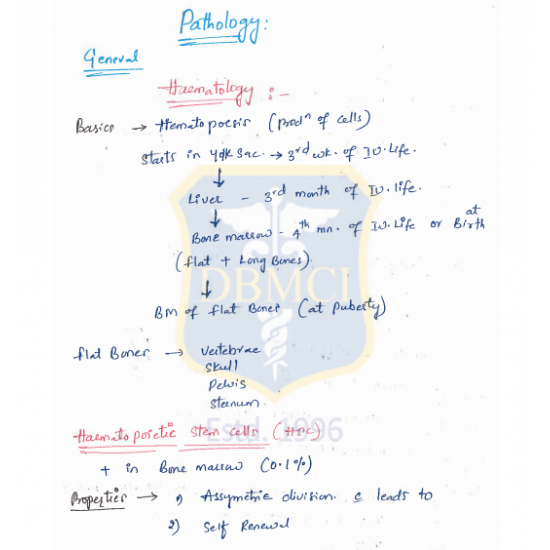 Pathology:
General
Haematology :-
Basics → Hematopoesis (prodn of cells)
Starts in Yolk Sac. → 3rd wk. of IU. life.
↓
Liver - 3rd month of IU. life.
↓
Bone marrow - 4th mn. of IU. Life or at Birth
(flat + Long Bones)
↓
BM of flat Bones (at Puberty)
flat Bones → Vertebrae
Skull
Pelvis
Sternum.
DBMCI
Estd. 1996
Haematopoietic Stem Cells (HSC)
+ in Bone marrow (0.1%)
Properties → 1) Assymetric division. c leads to
2) Self Renewal